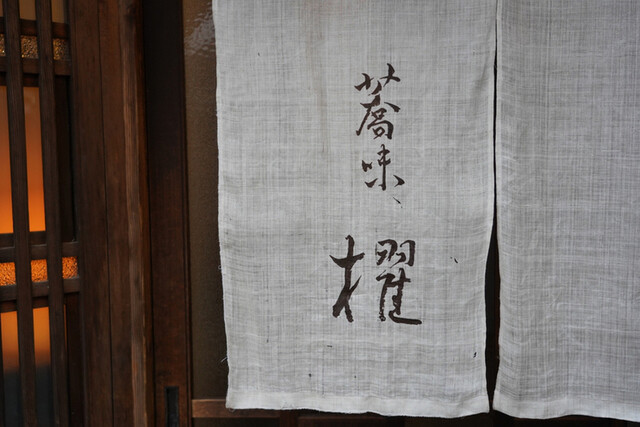 蕎味、櫂